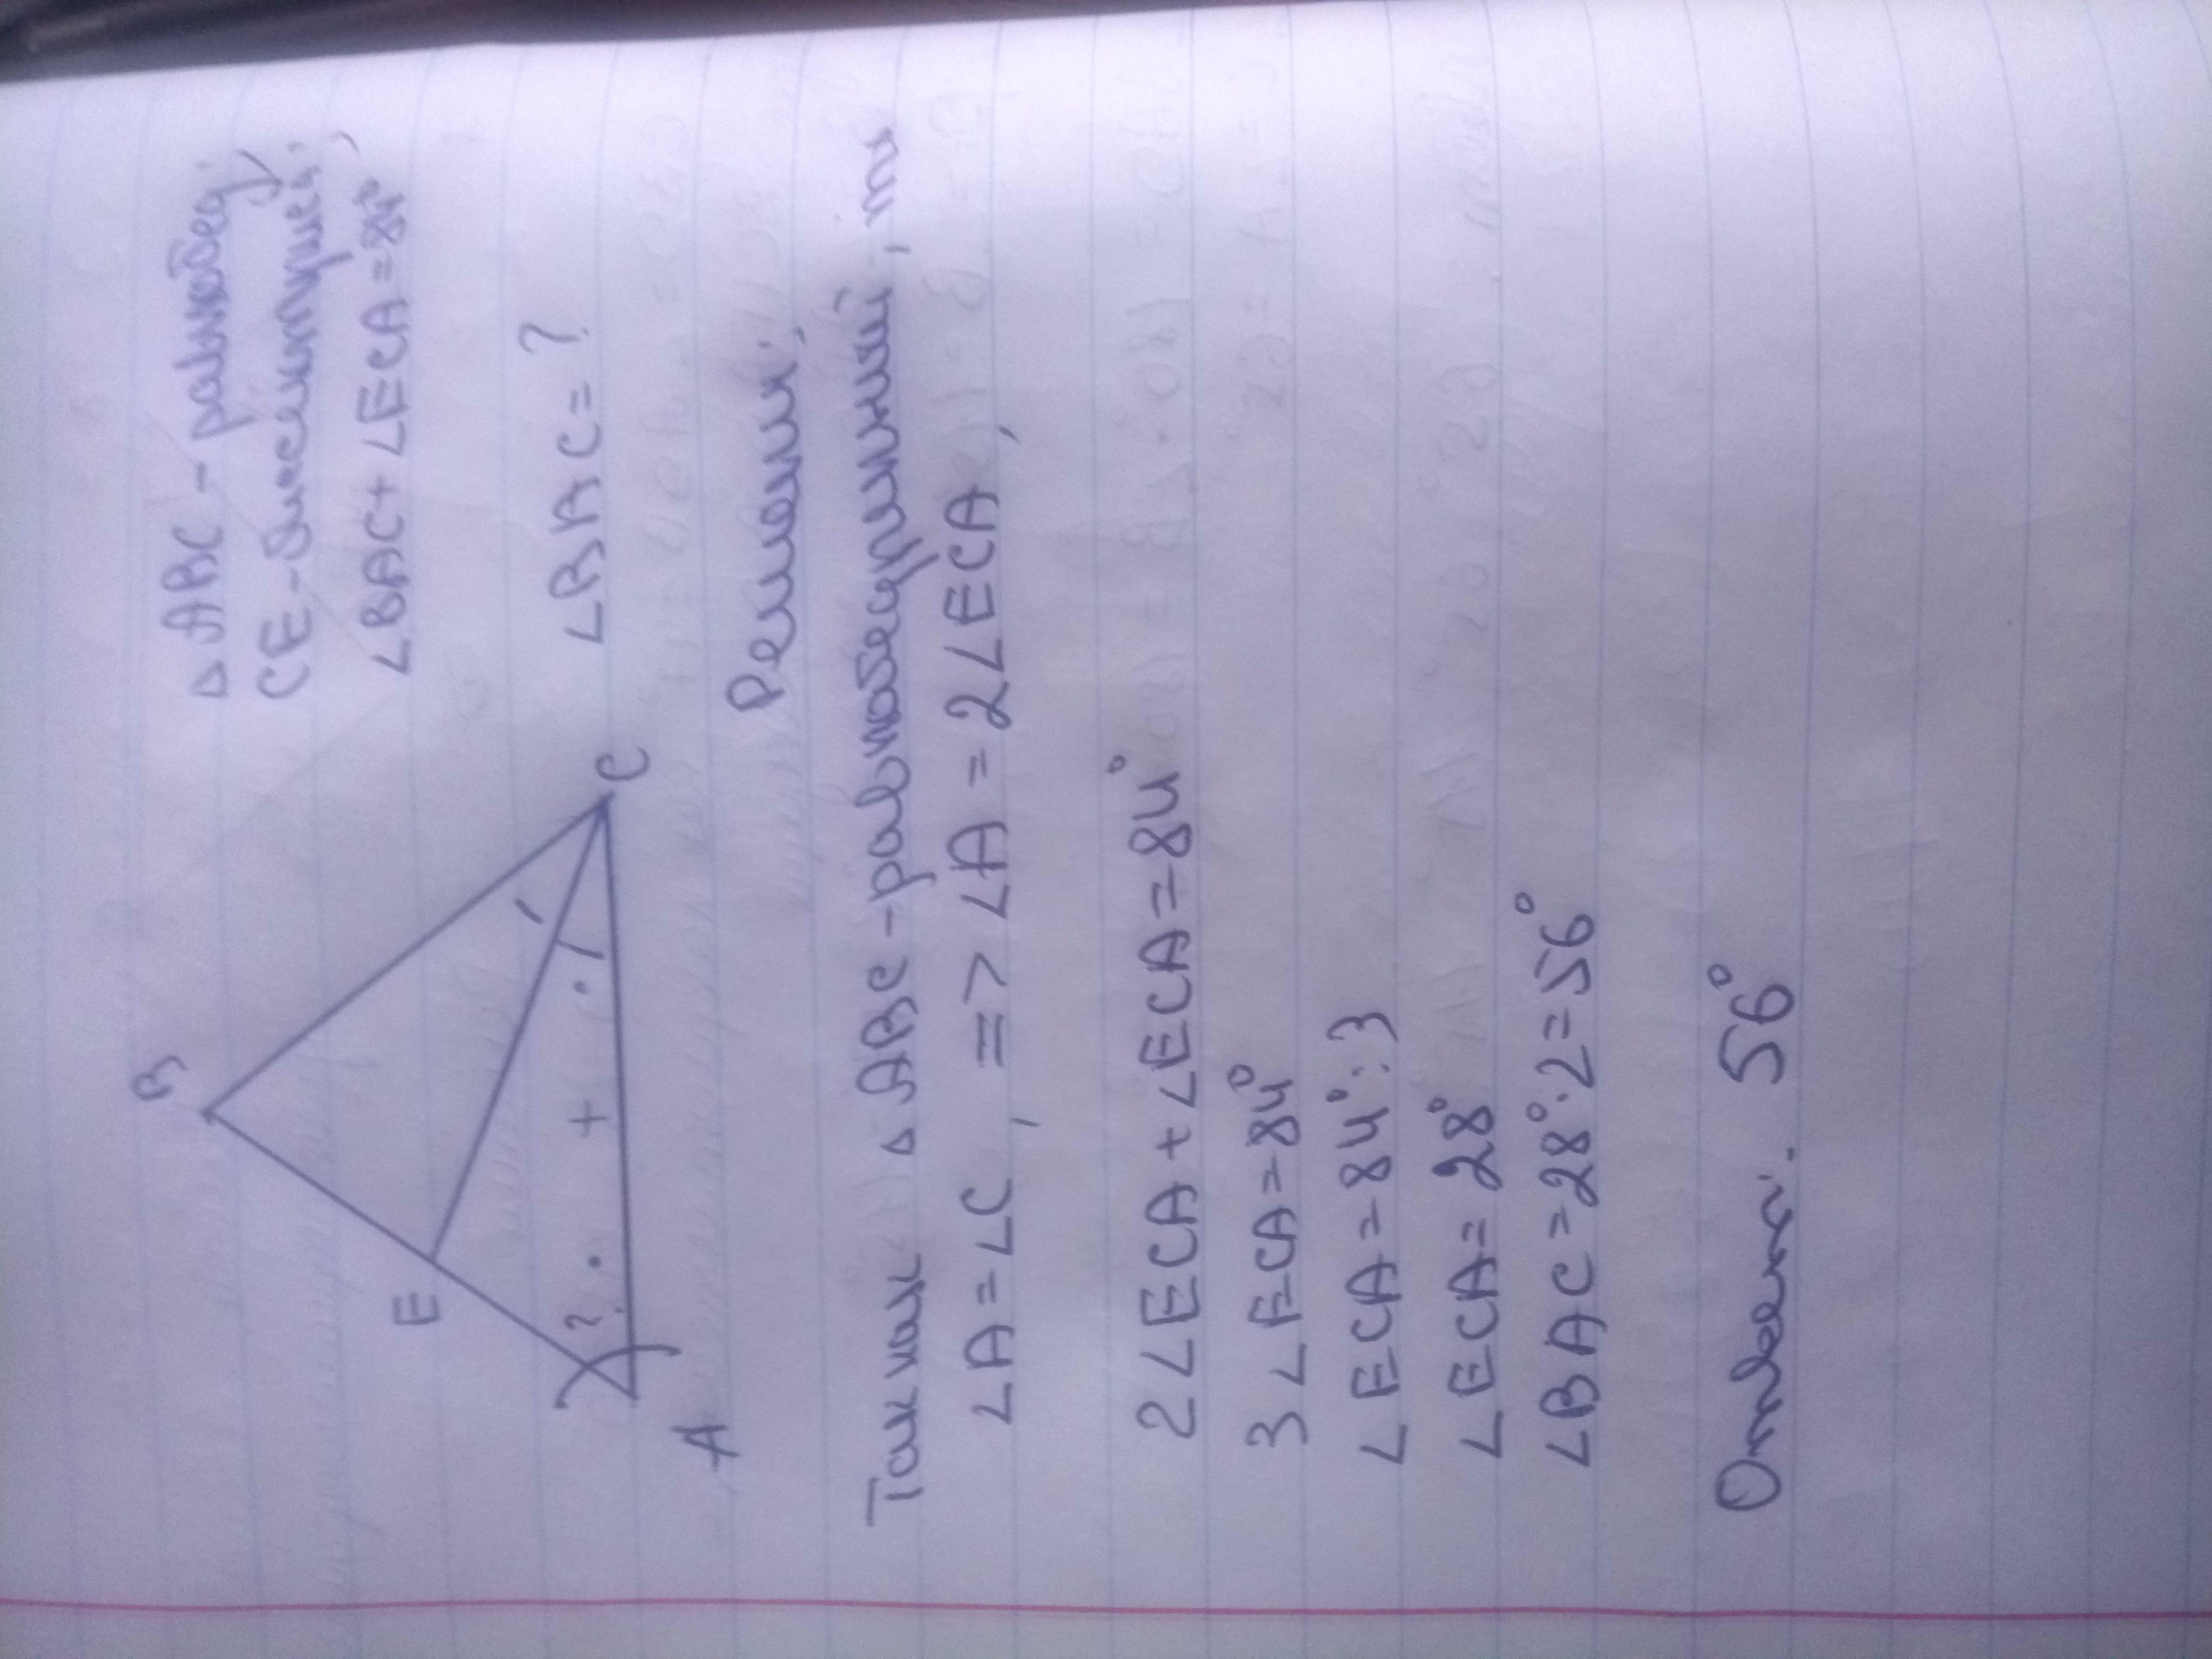 B
E
C
A
?
+
△ABC - равнобед,
CE - биссектриса,
∠BAC + ∠ECA = 84°,
∠BAC = ?
Решение,
Так как △ABC - равнобедренный, то
∠A = ∠C, => ∠A = 2∠ECA,
2∠ECA + ∠ECA = 84°
3∠ECA = 84°
∠ECA = 84° : 3
∠ECA = 28°
∠BAC = 28° · 2 = 56°
Ответ. 56°